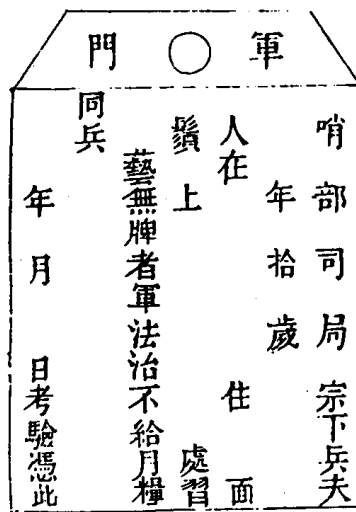 軍 ○ 門
哨部司局宗下兵夫
年拾歲
人在 住 面
鬚上 處習
藝無牌者軍法治不給月糧
同兵
年月 日考驗憑此